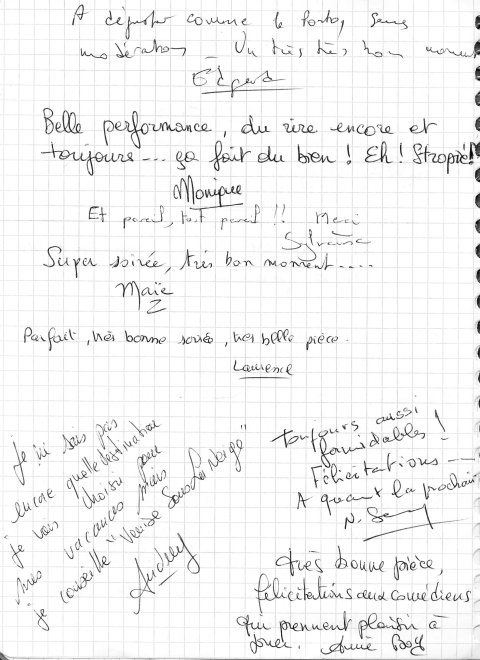 A déguster comme le Porto, sans
modération _ Un très très bon moment
Belle performance, du rire encore et
toujours.... ça fait du bien ! Eh ! Stropié !
Monique
Et pareil, tout pareil !! Merci
Sylvaine
Super soirée, très bon moment.....
Maïe
Parfait, très bonne soirée, très belle pièce.
Laurence
Je ne sais pas
encore quelle destination
je vais choisir pour
mes vacances mais
je conseille "Venise sous la neige"
Audrey
Toujours aussi
formidables !
Félicitations
A quand la prochaine
N.
Très bonne pièce,
félicitations aux comédiens
qui prennent plaisir à
jouer. Annie